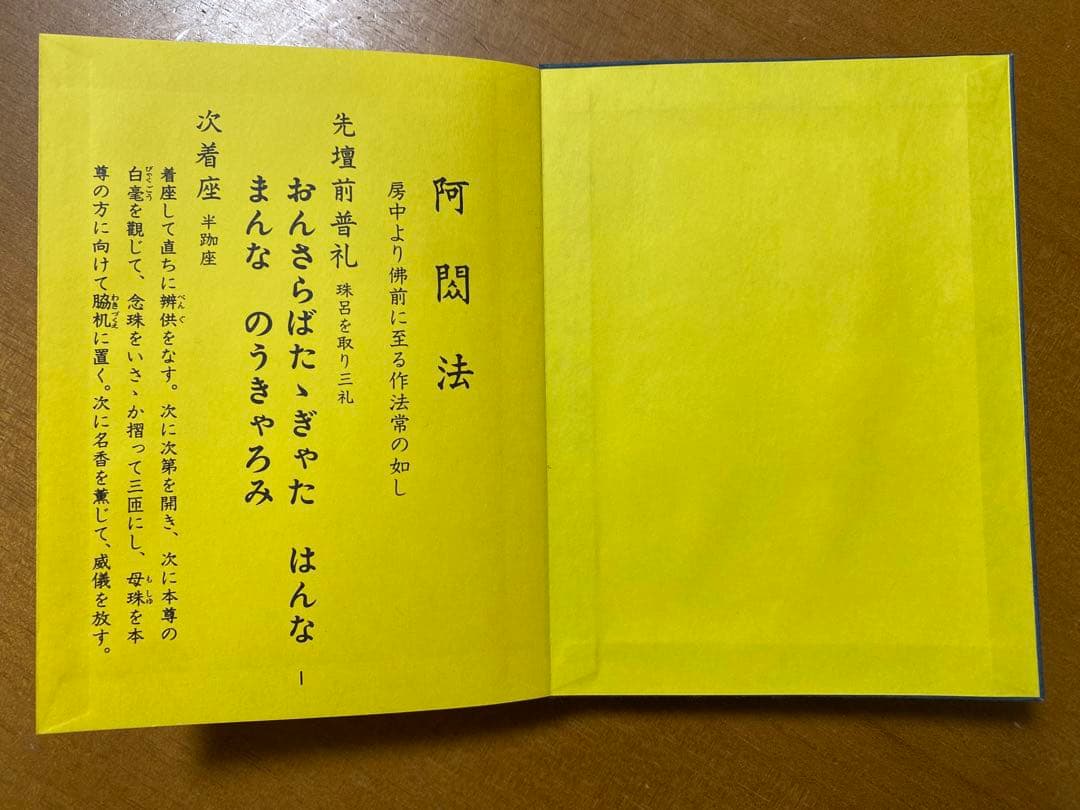 阿閦法
房中より佛前に至る作法常の如し
先壇前普礼 珠呂を取り三礼
おんさらばたゝぎゃた はんな
まんな のうきゃろみ
次着座 半跏座
着座して直ちに辨供をなす。次に次第を開き、次に本尊の
白毫を觀じて、念珠をいさゝか摺って三匝にし、母珠を本
尊の方に向けて脇机に置く。次に名香を薫じて、威儀を放す。
べんぐ
びゃくごう
もしゅ
わきづくえ
1